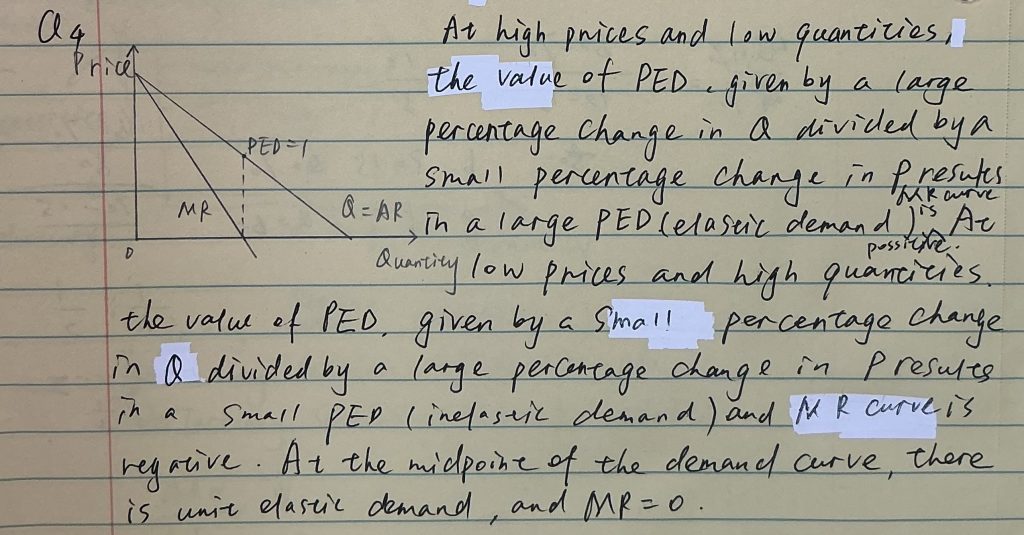 Q4
Price
PED=1
MR
Q=AR
0
Quantity
At high prices and low quantities,
the value of PED, given by a large
percentage change in Q divided by a
small percentage change in P results
in a large PED (elastic demand) MR curve is possitive. At
low prices and high quantities,
the value of PED, given by a small percentage change
in Q divided by a large percentage change in P results
in a small PED (inelastic demand) and MR curve is
negative. At the midpoint of the demand curve, there
is unit elastic demand, and MR=0.